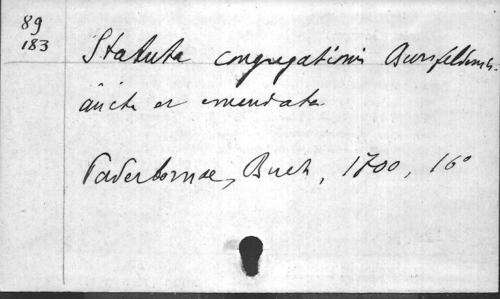 89
183
Statuta congregationis Bursfeldensis
aucta et emendata
Paderbornae, Buch, 1700, 16°